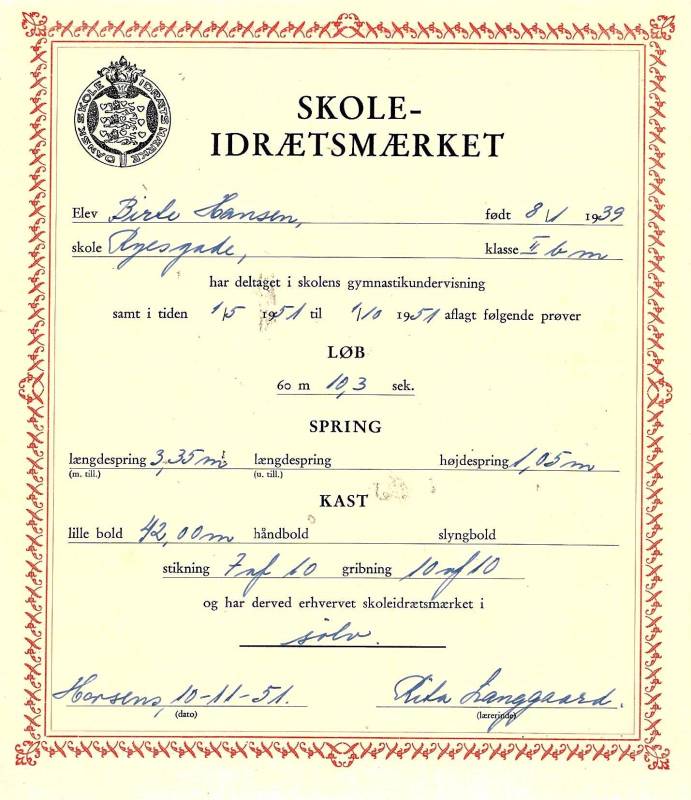 DANSK SKOLE IDRÆTSMÆRKE
SKOLE-
IDRÆTSMÆRKET
Elev Birte Hansen, født 8/1 1939
skole Ryesgade, klasse II b m
har deltaget i skolens gymnastikundervisning
samt i tiden 1/5 1951 til 1/10 1951 aflagt følgende prøver
LØB
60 m 10,3 sek.
SPRING
længdespring 3,35 m længdespring højdespring 1,05 m
(m. till.) (u. till.)
KAST
lille bold 42,00 m håndbold slyngbold
stikning 7 af 10 gribning 10 af 10
og har derved erhvervet skoleidrætsmærket i
sølv.
Horsens, 10-11-51. Rita Langgaard.
(dato) (lærerinde)